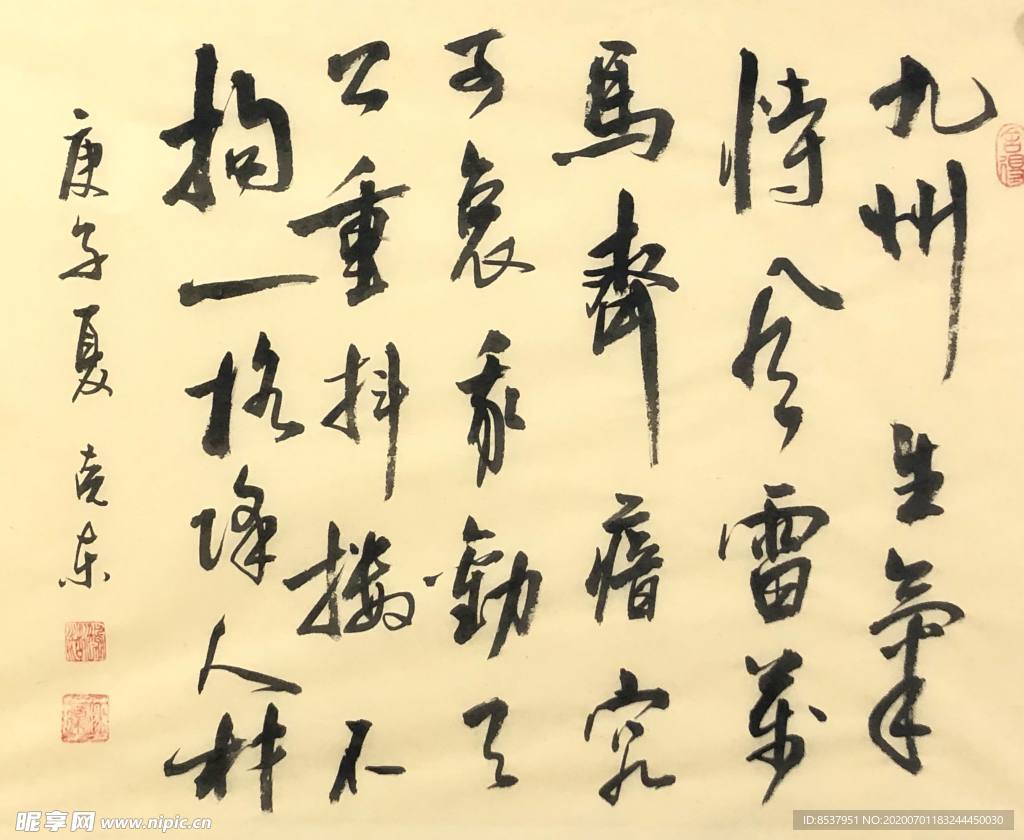 九州生氣
恃風雷萬
馬齊瘖究
可哀我勸天
公重抖擻不
拘一格降人材
庚子夏 克东
舍得
昵享网 www.nipic.cn
ID:8537951 NO:20200701183244450030